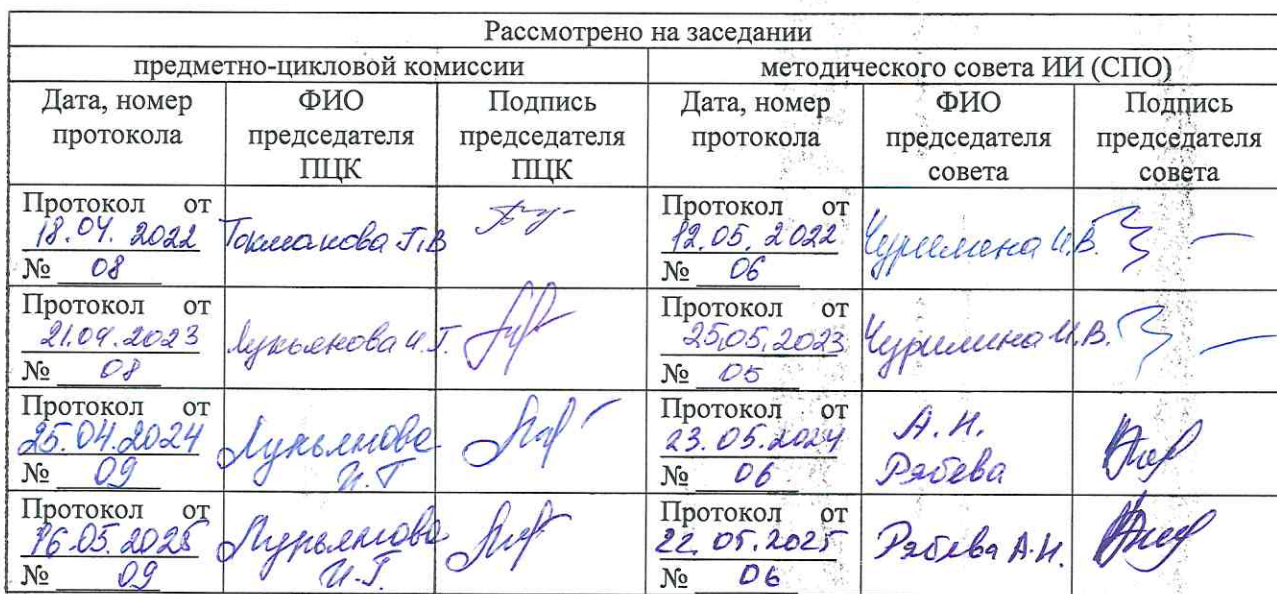 Рассмотрено на заседании
предметно-цикловой комиссии
методического совета ИИ (СПО)
Дата, номер протокола
ФИО председателя ПЦК
Подпись председателя ПЦК
Дата, номер протокола
ФИО председателя совета
Подпись председателя совета
Протокол от
18.04.2022
№ 08
Токманова Т.В
Протокол от
12.05.2022
№ 06
Чурилина И.В.
Протокол от
21.04.2023
№ 08
Лукьянова И.Г.
Протокол от
25.05.2023
№ 05
Чурилина И.В.
Протокол от
25.04.2024
№ 09
Лукьянова
И.Г
Протокол от
23.05.2024
№ 06
А.Н.
Рябева
Протокол от
16.05.2025
№ 09
Лукьянова
И.Г.
Протокол от
22.05.2025
№ 06
Рябева А.Н.